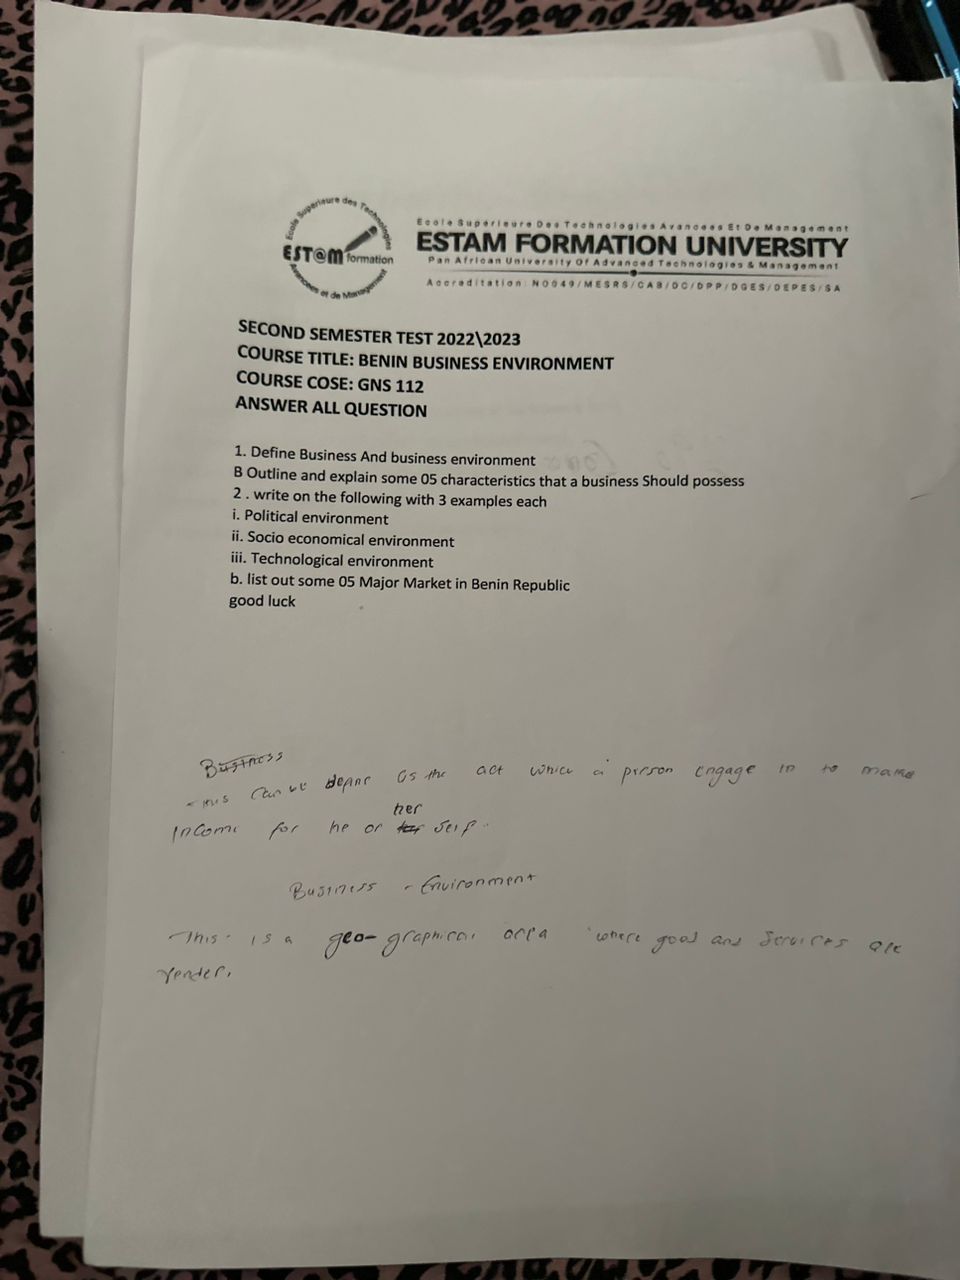 Ecole Superieure des Technologies
EST@M formation
Avancees et de Management
Ecole Superieure Des Technologies Avancees Et De Management
ESTAM FORMATION UNIVERSITY
Pan African University Of Advanced Technologies & Management
Accreditation: N0049/MESRS/CAB/DC/DPP/DGES/DEPES/SA
SECOND SEMESTER TEST 2022\2023
COURSE TITLE: BENIN BUSINESS ENVIRONMENT
COURSE COSE: GNS 112
ANSWER ALL QUESTION
1. Define Business And business environment
B Outline and explain some 05 characteristics that a business Should possess
2 . write on the following with 3 examples each
i. Political environment
ii. Socio economical environment
iii. Technological environment
b. list out some 05 Major Market in Benin Republic
good luck
Business
this can be define as the act which a person engage in to make
her
income for he or self.
Business - Environment
This is a geo-graphical area where good and services are
render.